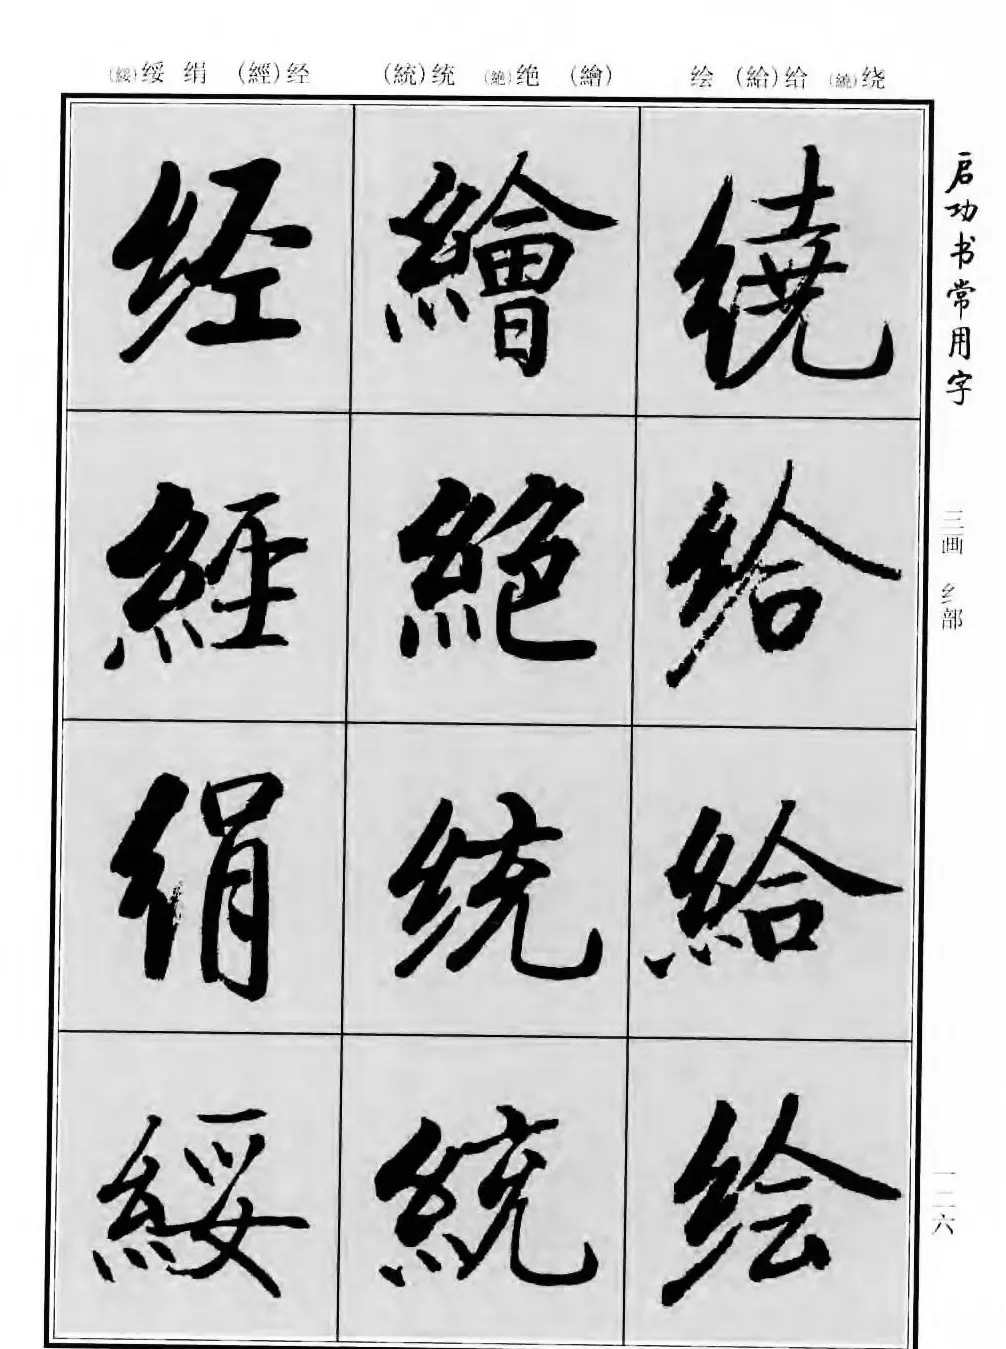 (綏)绥 绢 (經)经 (統)统 (絶)绝 (繪) 绘 (給)给 (繞)绕
启功书常用字
三画 纟部
一二六
繞
给
給
绘
繪
絕
统
統
经
經
绢
綏